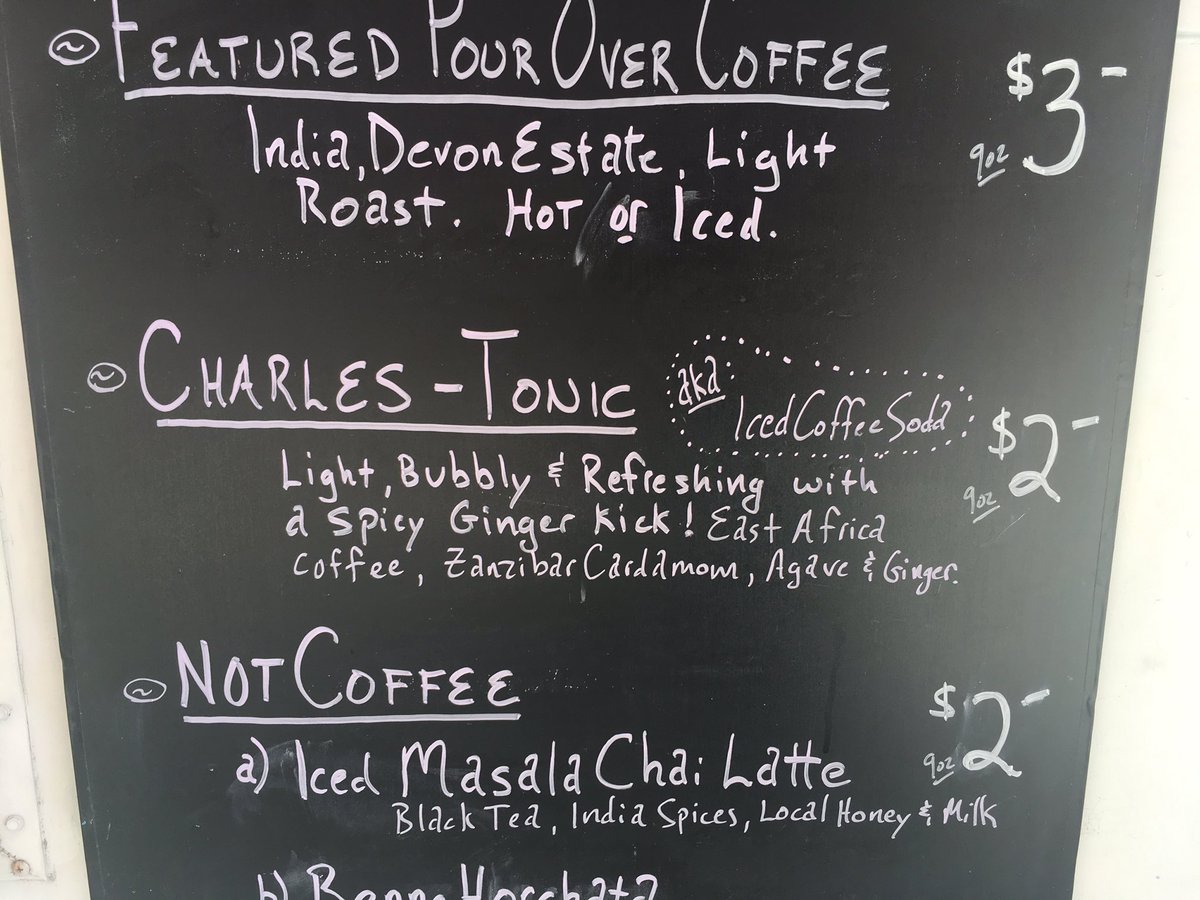 ~ FEATURED POUR OVER COFFEE
$3-
9oz
India, Devon Estate, Light
Roast. HOT or Iced.
~ CHARLES-TONIC
aka
Iced Coffee Soda
$2-
9oz
Light, Bubbly & Refreshing with
a Spicy Ginger Kick! East Africa
coffee, Zanzibar Cardamom, Agave & Ginger.
~ NOT COFFEE
$2-
9oz
a) Iced Masala Chai Latte
Black Tea, India Spices, Local Honey & Milk
b)